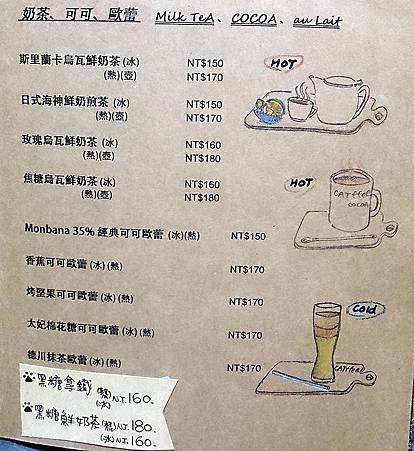 奶茶、可可、歐蕾 Milk TeA、COCOA、au Lait
斯里蘭卡烏瓦鮮奶茶(冰) NT$150
(熱)(壺) NT$170
HOT
日式海神鮮奶煎茶(冰) NT$150
(熱)(壺) NT$170
玫瑰烏瓦鮮奶茶(冰) NT$160
(熱)(壺) NT$180
焦糖烏瓦鮮奶茶(冰) NT$160
(熱)(壺) NT$180
HOT
CATffee
COCOA
Monbana 35% 經典可可歐蕾(冰)(熱) NT$150
香蕉可可歐蕾(冰)(熱) NT$170
烤堅果可可歐蕾(冰)(熱) NT$170
太妃棉花糖可可歐蕾(冰)(熱) NT$170
Cold
德川抹茶歐蕾(冰)(熱) NT$170
CATffee
黑糖拿鐵 (熱)(冰) N.T. 160.
黑糖鮮奶茶 (熱) N.T. 180.
(冰) N.T. 160.